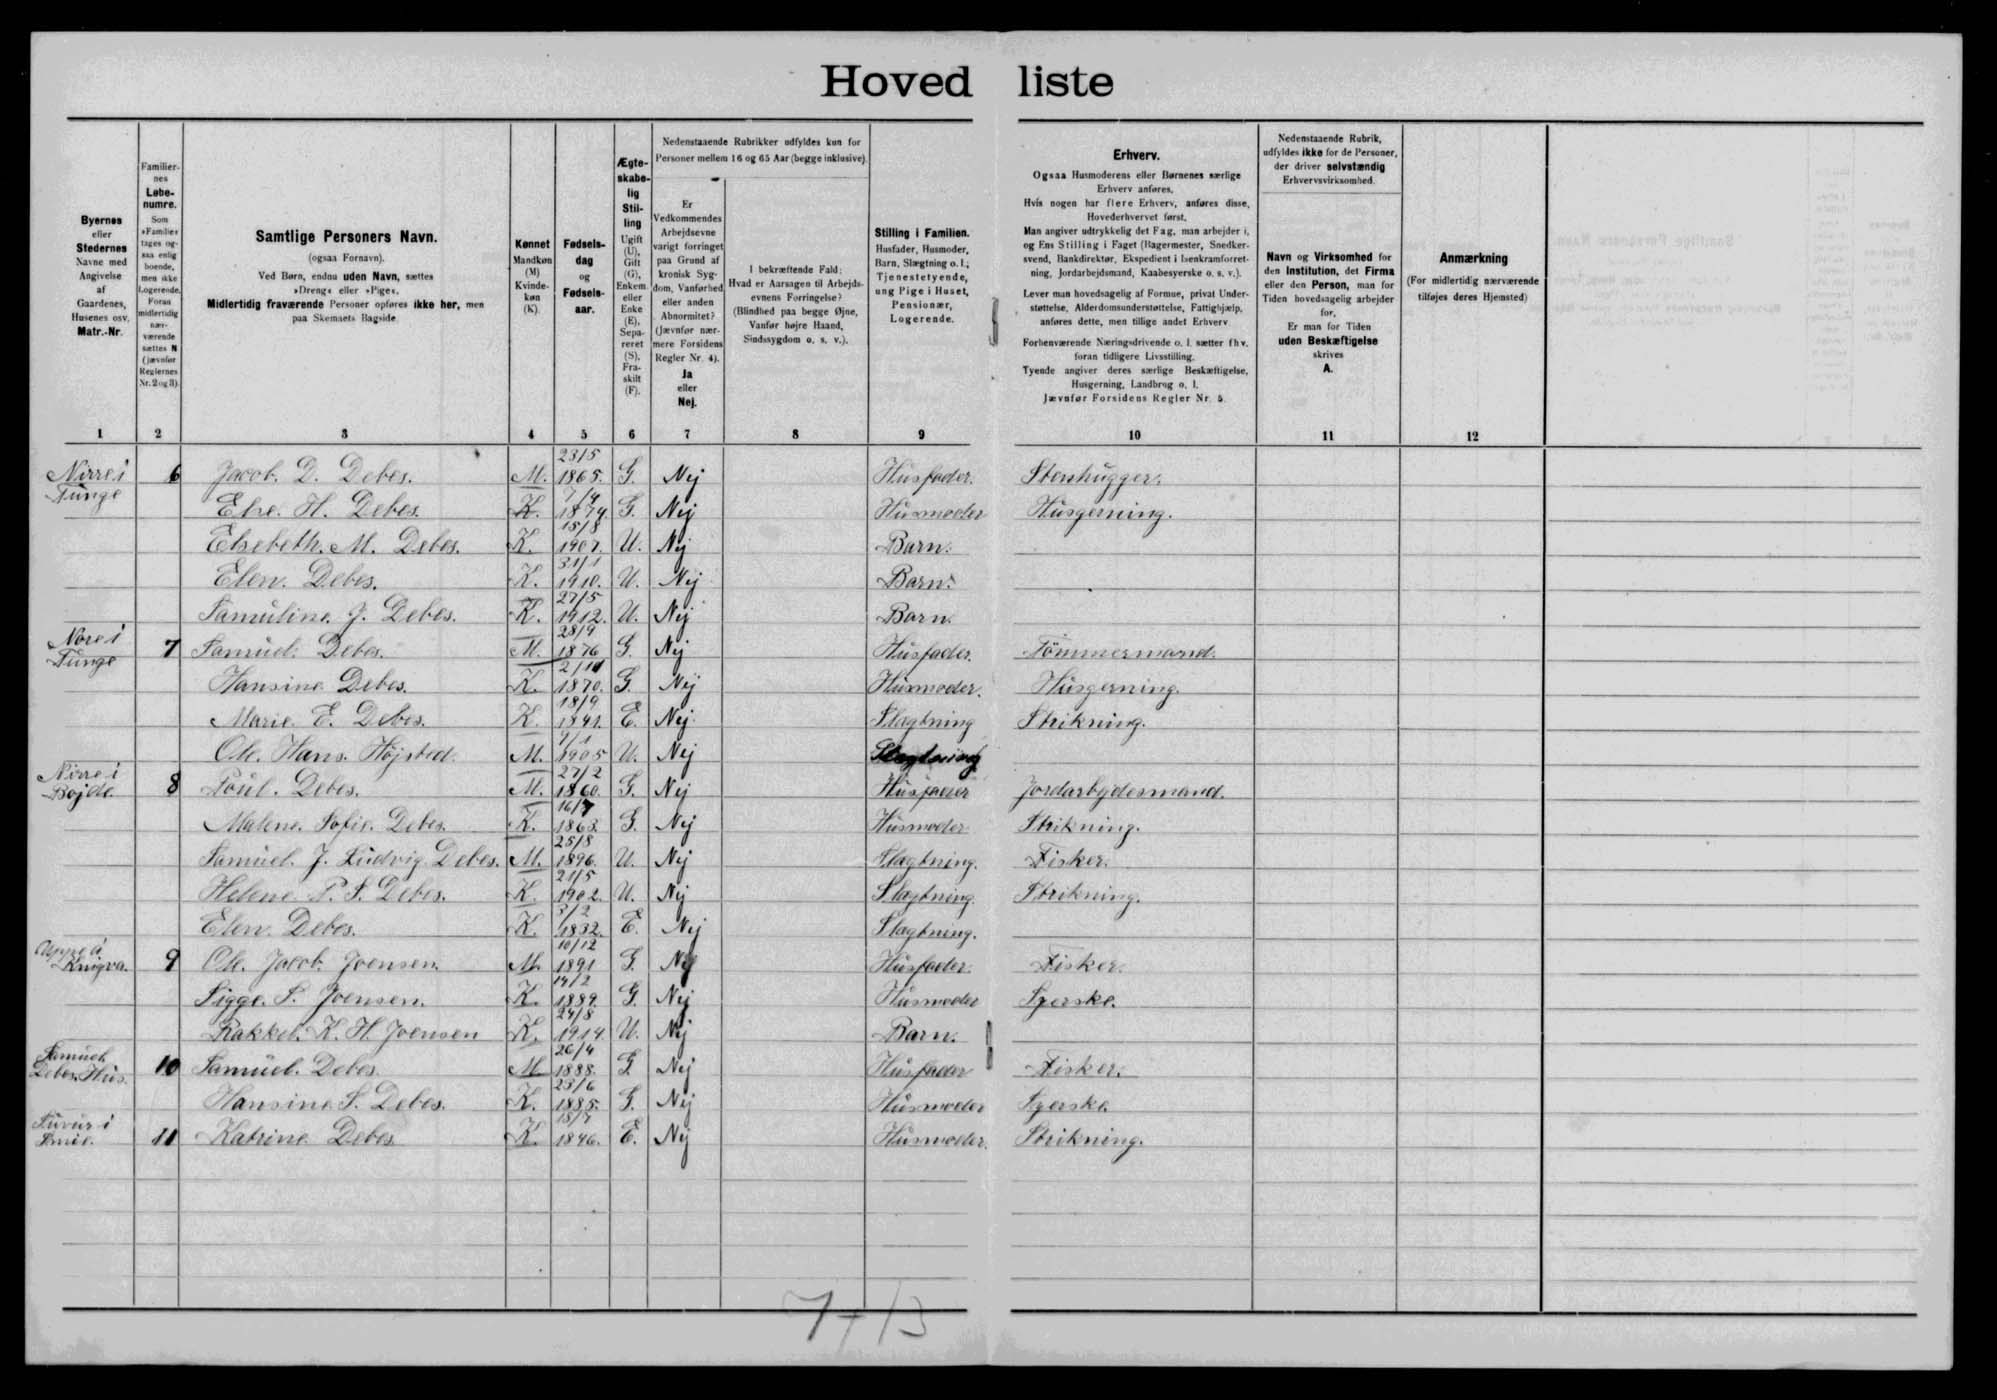 Hoved liste
Byernes
eller
Stedernes
Navne med
Angivelse
af
Gaardenes,
Husenes osv.
Matr.-Nr.
Familier-
nes
Løbe-
numre.
Som
»Familie«
tages og-
saa enlig
boende,
men ikke
Logerende.
Foran
midlertidig
nær-
værende
sættes N
(jævnfør
Reglernes
Nr. 2 og 3).
Samtlige Personers Navn.
(ogsaa Fornavn).
Ved Børn, endnu uden Navn, sættes
»Dreng« eller »Pige«.
Midlertidig fraværende Personer opføres ikke her, men
paa Skemaets Bagside.
Kønnet
Mandkøn
(M)
Kvinde-
køn
(K).
Fødsels-
dag
og
Fødsels-
aar.
Ægte-
skabe-
lig
Stil-
ling
Ugift
(U),
Gift
(G),
Enkem.
eller
Enke
(E),
Sepa-
reret
(S),
Fra-
skilt
(F).
Nedenstaaende Rubrikker udfyldes kun for
Personer mellem 16 og 65 Aar (begge inklusive).
Er
Vedkommendes
Arbejdsevne
varigt forringet
paa Grund af
kronisk Syg-
dom, Vanførhed
eller anden
Abnormitet?
(Jævnfør nær-
mere Forsidens
Regler Nr. 4).
Ja
eller
Nej.
I bekræftende Fald:
Hvad er Aarsagen til Arbejds-
evnens Forringelse?
(Blindhed paa begge Øjne,
Vanfør højre Haand,
Sindssygdom o. s. v.).
Stilling i Familien.
Husfader, Husmoder,
Barn, Slægtning o. l.;
Tjenestetyende,
ung Pige i Huset,
Pensionær,
Logerende.
Erhverv.
Ogsaa Husmoderens eller Børnenes særlige
Erhverv anføres.
Hvis nogen har flere Erhverv, anføres disse,
Hovederhvervet først.
Man angiver udtrykkelig det Fag, man arbejder i,
og Ens Stilling i Faget (Bagermester, Snedker-
svend, Bankdirektør, Ekspedient i Isenkramforret-
ning, Jordarbejdsmand, Kaabesyerske o. s. v.).
Lever man hovedsagelig af Formue, privat Under-
støttelse, Alderdomsunderstøttelse, Fattighjælp,
anføres dette, men tillige andet Erhverv
Forhenværende Næringsdrivende o. l. sætter fhv.
foran tidligere Livsstilling.
Tyende angiver deres særlige Beskæftigelse,
Husgerning, Landbrug o. l.
Jævnfør Forsidens Regler Nr. 5.
Nedenstaaende Rubrik,
udfyldes ikke for de Personer,
der driver selvstændig
Erhvervsvirksomhed.
Navn og Virksomhed for
den Institution, det Firma
eller den Person, man for
Tiden hovedsagelig arbejder
for.
Er man for Tiden
uden Beskæftigelse
skrives
A.
Anmærkning
(For midlertidig nærværende
tilføjes deres Hjemsted)
1 2 3 4 5 6 7 8 9 10 11 12
Nirre i Tunge 6 Jacob. D. Debes. M. 23/5 1865. G. Nej Husfader. Stenhugger.
Else. H. Debes. K. 7/4 1874. G. Nej Husmoder Husgerning.
Elsebeth. M. Debes. K. 15/8 1907. U. Nej Barn.
Elen. Debes. K. 31/1 1910. U. Nej Barn.
Samuline. J. Debes. K. 27/5 1912. U. Nej Barn.
Nore i Tunge 7 Samuel. Debes. M. 28/9 1876 G. Nej Husfader. Tömmermand.
Hansine. Debes. K. 1870. G. Nej Husmoder. Husgerning.
Marie. E. Debes. K. 18/9 1841. E. Nej Slægtning Strikning.
Ole. Hans. Højsted. M. 1905 U. Nej Slægtning
Nirre i Bøjde. 8 Poul. Debes. M. 27/2 1860. G. Nej Husfader Jordarbejdesmand.
Malene. Sofie. Debes. K. 1863. G. Nej Husmoder Strikning.
Samuel. J. Ludvig. Debes. M. 25/8 1896. U. Nej Slægtning. Fisker.
Helene. P. S. Debes. K. 21/5 1902. U. Nej Slægtning Strikning.
Elen. Debes. K. 3/2 1832. E. Nej Slægtning.
9 Ole. Jacob. Joensen. M. 10/12 1891 G. Nej Husfader. Fisker.
Sigge. S. Joensen. K. 14/2 1889. G. Nej Husmoder Syerske.
Rakkel. K. H. Joensen K. 24/8 1914. U. Nej Barn.
Samuel Debes. Hus. 10 Samuel. Debes. M. 26/4 1888. G Nej Husfader Fisker.
Hansine. S. Debes. K. 23/6 1885. G. Nej Husmoder Syerske.
11 Katrine. Debes. K. 15/7 1846. E. Nej Husmoder. Strikning.
7+13